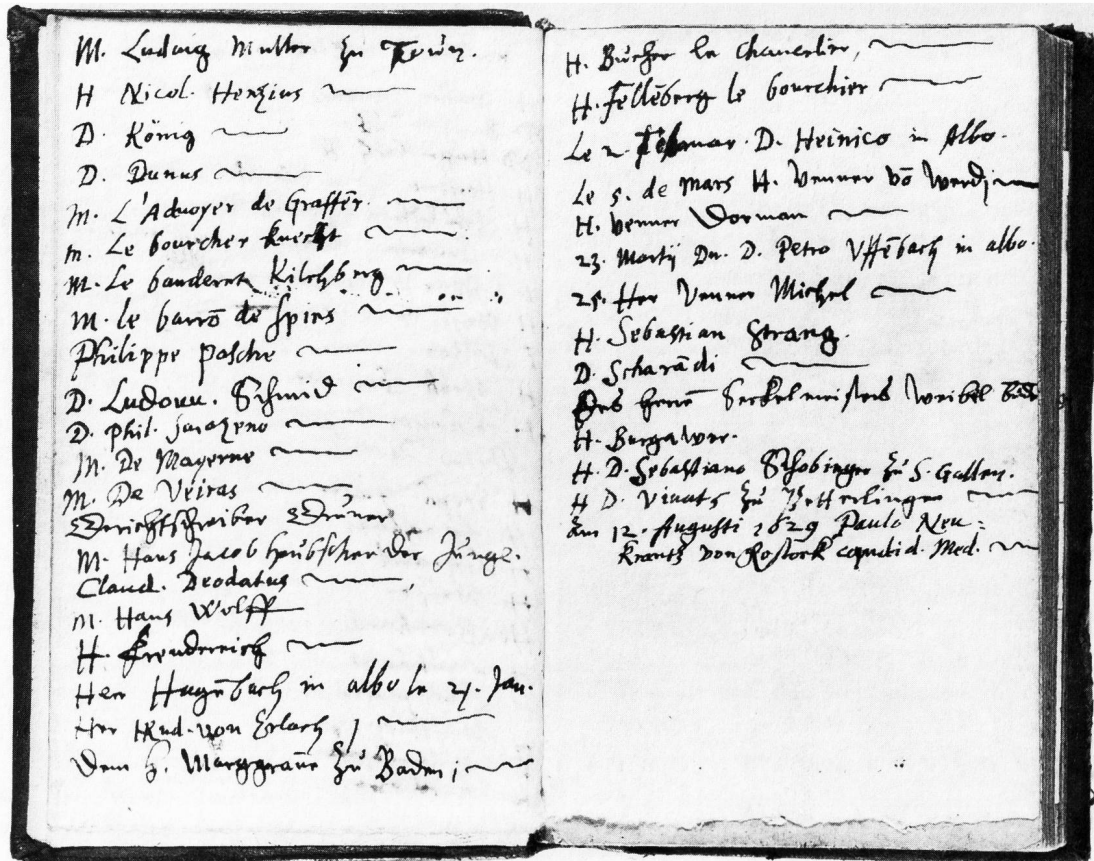 M. Ludwig Muller zu
H Nicol. Henzius
D. König
D. Dunus
M. L'Advoyer de Graffēr.
m. Le bourcher knecht
M. Le banderet Kilchberg
M. le barrō de spies
Philippe Pasche
D. Ludovu. Schmid
D. Phil. Sarazeno
M. De Mayerne
M. De Veiras
Grichtschreiber Gruner
M. Hans Jacob Heubscher der Jüngl.
Claud. Deodatus
M. Hans Wolff
H. Freudereich
Her Hagēbach in albo le 27. Jan.
Her Rud. von Erlach
Dem H. Marggraue zu Baden
H. Bücher le chancelier,
H. Fellēberg le bourchier
Le 2. D. Heinico in Albo.
Le 5. de Mars H. Venner vō Werdj
H. Venner Dorman
23. Martij Dn. D. Petro Vffēbach in albo.
25. Her Venner Michel
H. Sebastian Strang
D. Scharādi
Des herrē Seckelmeisters weibel
H. Burgawer.
H. D. Sebastiano Schobinger zu S. Gallen.
H D. Vivats zu Petterlingen
Am 12. Augusti 1629 Paulo Neu=
krantz von Rostock candid. Med.